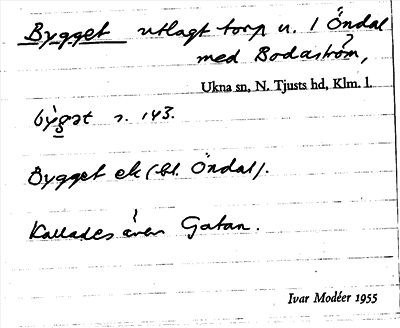 Bygget utlagt torp u. 1 Öndal
med Bodaström,
Ukna sn, N. Tjusts hd, Klm. l.
s. 143.
Bygget ek (bl. Öndal).
Kallades även Gatan.
Ivar Modéer 1955